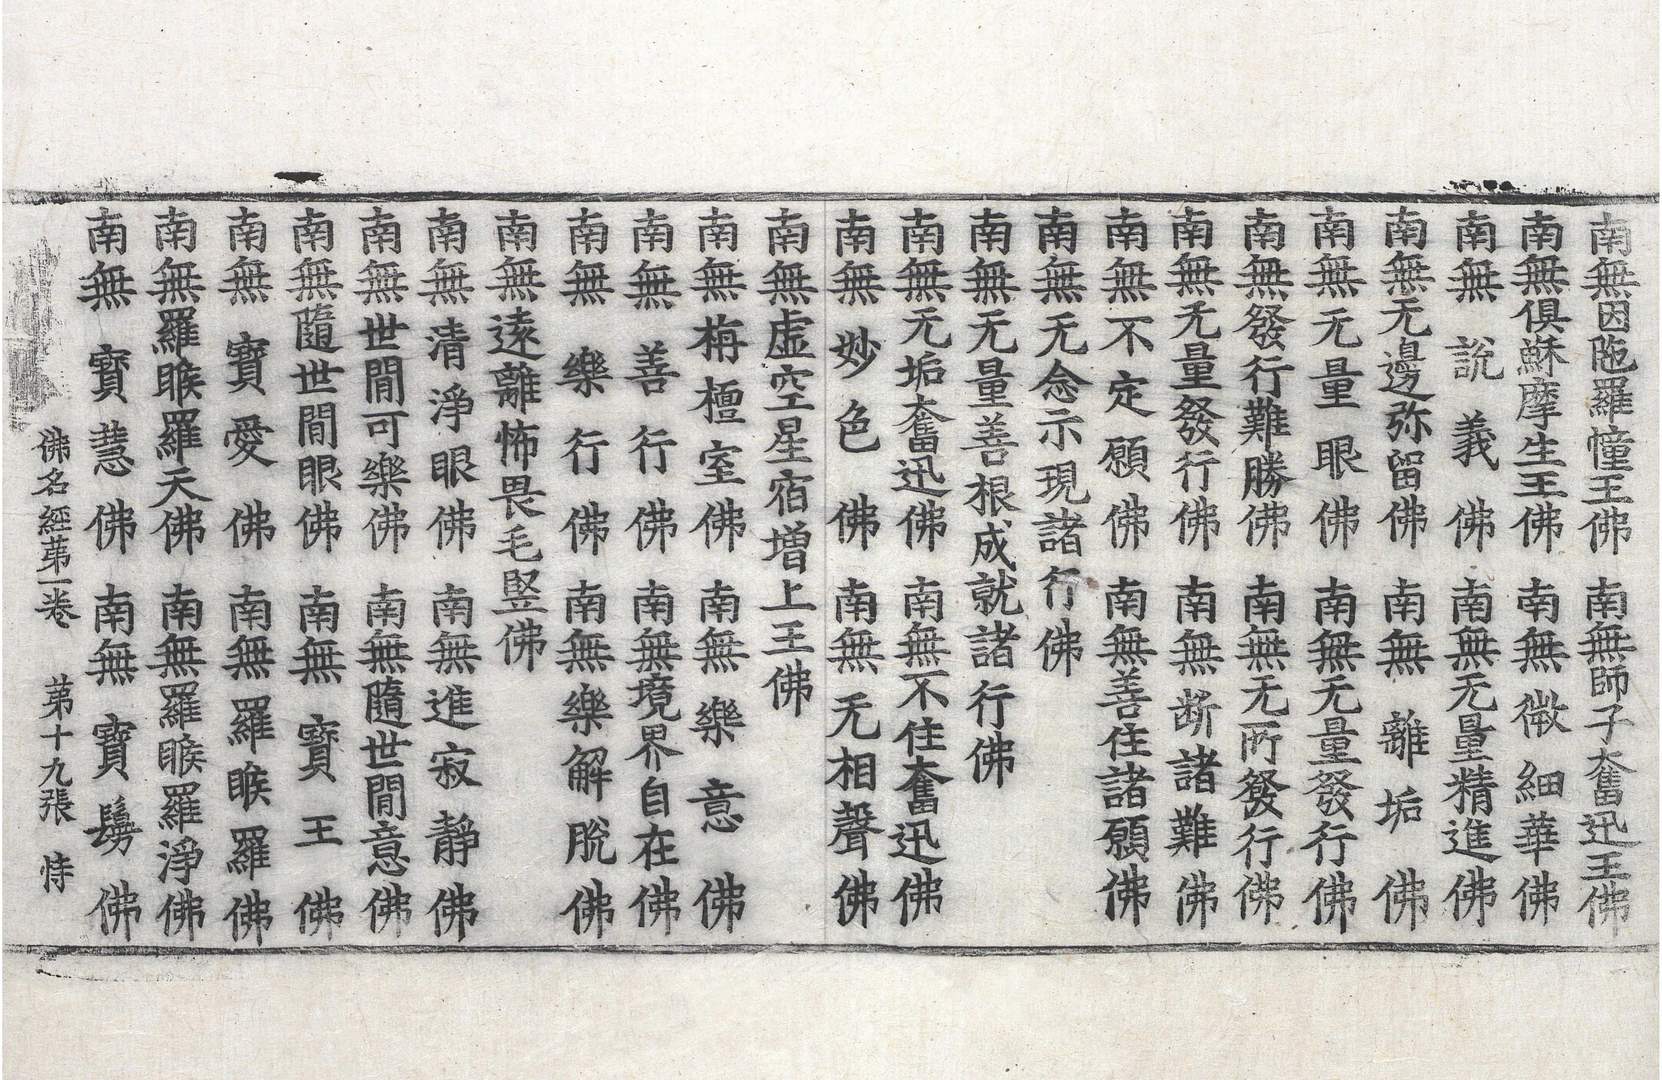 南無因陁羅幢王佛　南無師子奮迅王佛
南無俱蘇摩生王佛　南無微細華佛
南無說義佛　南無无量精進佛
南無无邊弥留佛　南無離垢佛
南無无量眼佛　南無无量發行佛
南無發行難勝佛　南無无所發行佛
南無无量發行佛　南無断諸難佛
南無不定願佛　南無善住諸願佛
南無无念示現諸行佛
南無无量善根成就諸行佛
南無无垢奮迅佛　南無不住奮迅佛
南無妙色佛　南無无相聲佛
南無虛空星宿增上王佛
南無栴檀室佛　南無樂意佛
南無善行佛　南無境界自在佛
南無樂行佛　南無樂解脫佛
南無遠離怖畏毛竪佛
南無清淨眼佛　南無進寂靜佛
南無世間可樂佛　南無隨世間意佛
南無隨世間眼佛　南無寶王佛
南無寶愛佛　南無羅睺羅佛
南無羅睺羅天佛　南無羅睺羅淨佛
南無寶慧佛　南無寶髣佛
佛名經苐一卷　苐十九張　恃